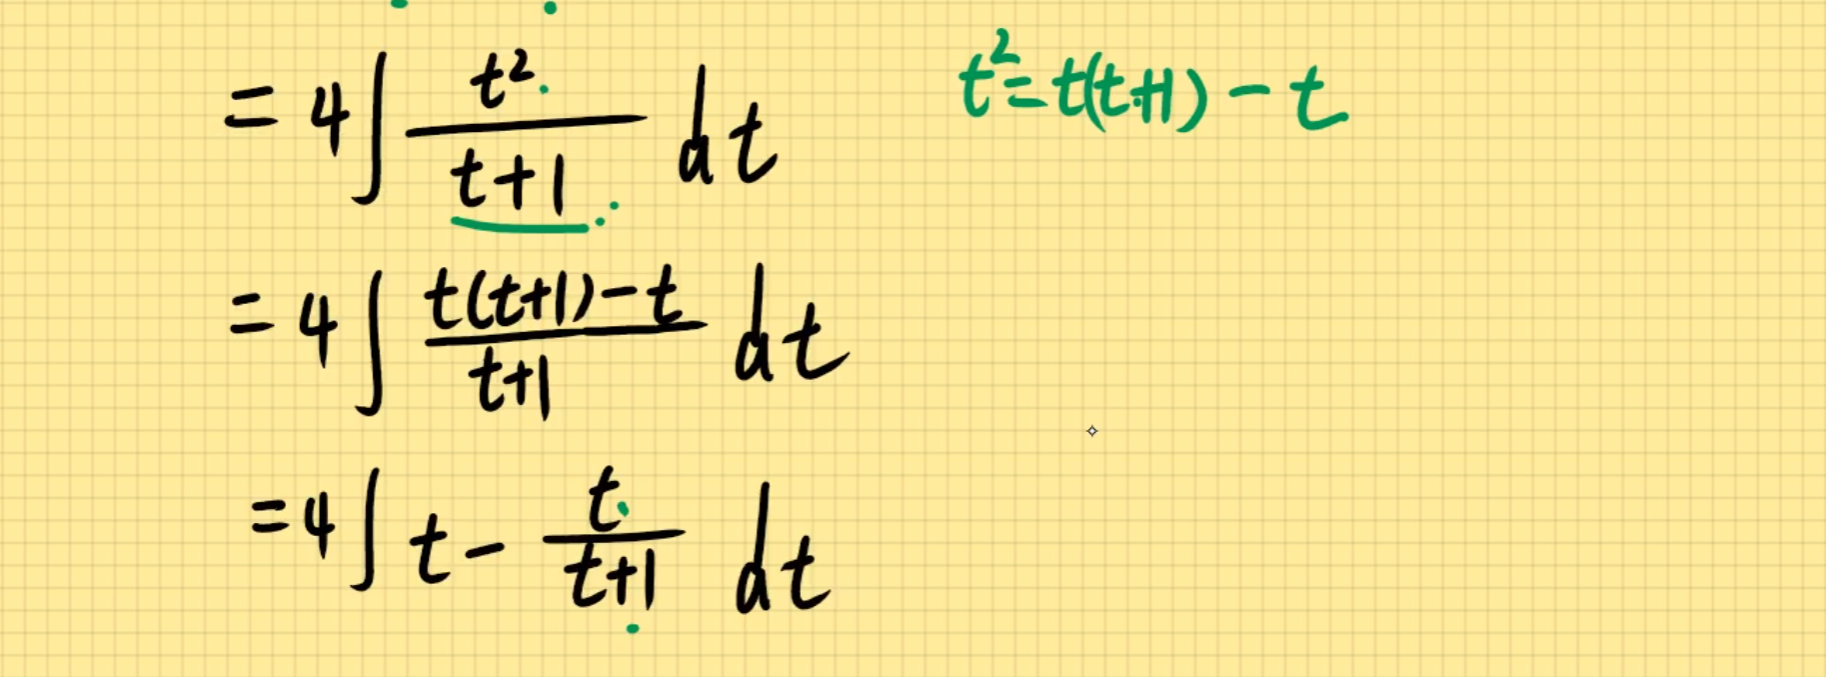 = 4∫ t²/(t+1) dt
t² = t(t+1) - t
= 4∫ (t(t+1)-t)/(t+1) dt
= 4∫ t - t/(t+1) dt